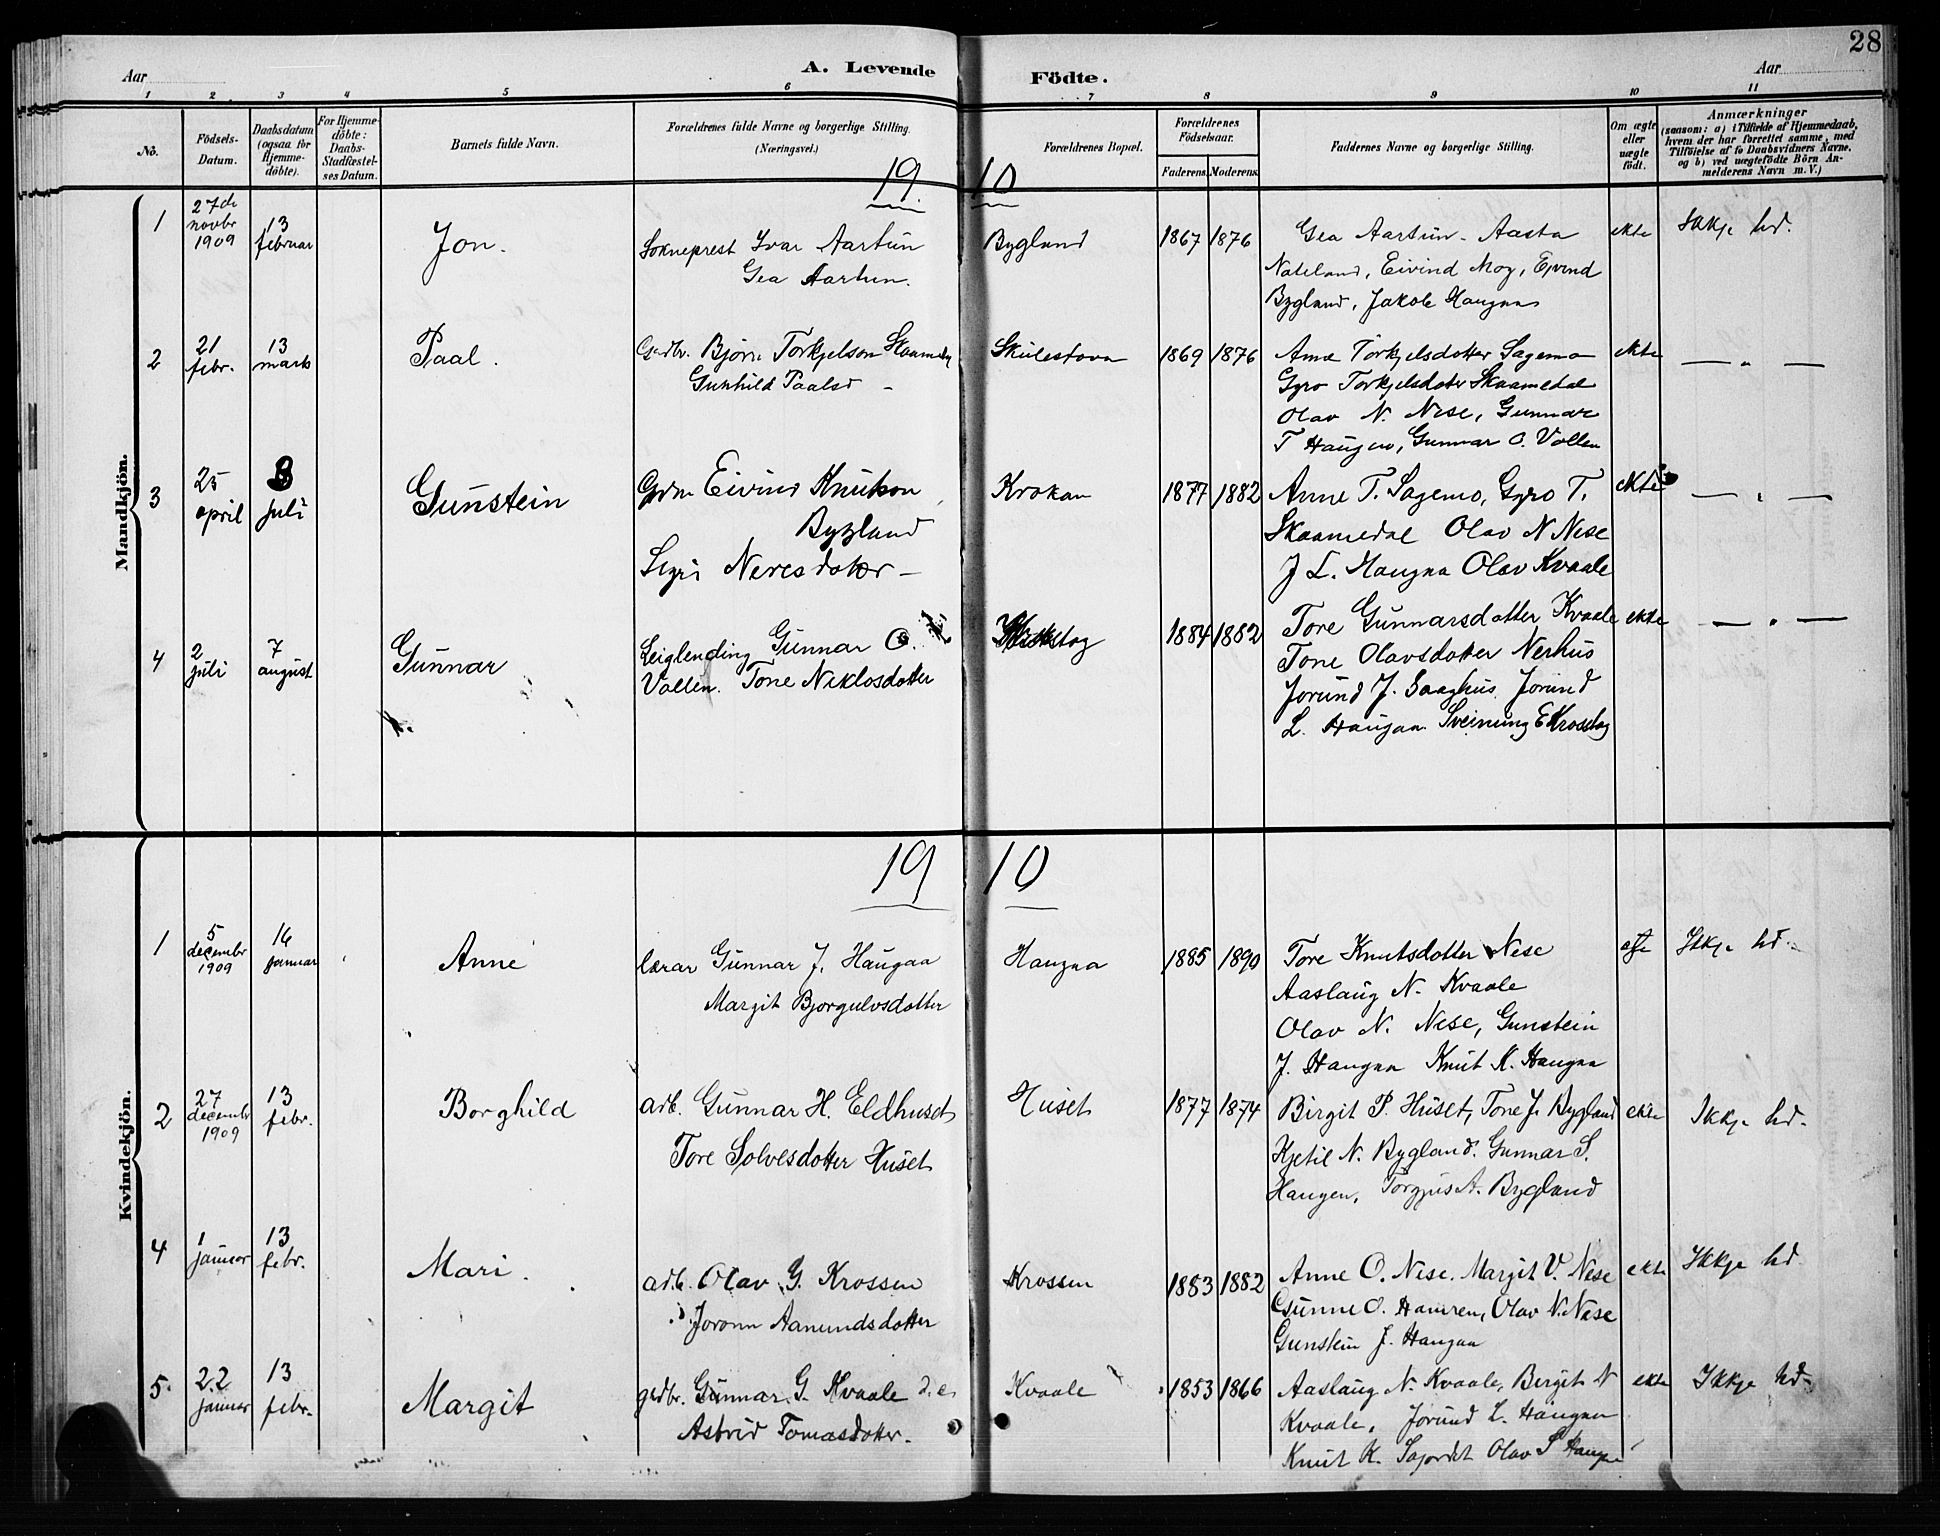 28
Aar
A. Levende
Födte.
Aar
1 2 3 4 5 6 7 8 9 10 11
No.
Födsels-
Datum.
Daabsdatum
(ogsaa for
Hjemme-
döbte).
For Hjemme-
döbte:
Daabs-
Stadfæstel-
ses Datum.
Barnets fulde Navn.
Forældrenes fulde Navne og borgerlige Stilling.
(Næringsvei.)
Forældrenes Bopæl.
Forældrenes
Födselsaar.
Faderens.
Moderens.
Faddernes Navne og borgerlige Stilling.
Om ægte
eller
uægte
födt.
Anmærkninger
(saasom: a) i Tilfælde af Hjemmedaab,
hvem der har forrettet samme, med
Tilföielse af to Daabsvidners Navne,
og b) ved uægtefödte Börn An-
melderens Navn m. V.)
19 10
Mandkjön.
1
27de
novbr
1909
13
februar
Jon.
Sokneprest Ivar Aartun
Gea Aartun.
Bygland
1867 1876
Gea Aartun - Aasta
Nateland, Eivind Moy, Eivind
Bygland, Jakob Haugaa
ekte
Ikkje hd.
2
21
febr.
13
marts
Paal.
Gardbr. Bjørn Torkjelson Skaamedal
Gunhild Paalsd -
Skulestova
1869 1876
Anne Torkjelsdotter Sagemo
Gyro Torkjelsdoter Skaamedal
Olav N. Nese, Gunnar
T Haugen, Gunnar O. Vollen
ekte
— " —
3
25
april
3
juli
Gunstein
Eivind Knutson
Bygland
Sigri Neresdoter -
Krokan
1877 1882
Anne T. Sagemo, Gyro T.
Skaamedal Olav N Nese
J L. Haugaa Olav Kvaale
ekte
— " —
4
2
juli
7
august
Gunnar
Leiglending Gunnar O.
Vollen. Tone Niklosdotter
1884 1882
Tore Gunnarsdotter Kvaale
Tone Olavsdotter Nerhus
Jorund J. Saaghus Jorund
L. Haugaa Sveinung E Krosstog
ekte
— " —
19 10
Kvindekjön.
1
5
decembr
1909
16
januar
Anne
lærar Gunnar J. Haugaa
Margit Bjorgulvsdotter
Haugaa
1885 1890
Tore Knutsdotter Nese
Aaslaug N. Kvaale
Olav N. Nese, Gunstein
J. Haugaa Knut K. Haugaa
Ikkje hd.
2
27
decembr
1909
13
febr.
Borghild
arb. Gunnar H. Eldhuset
Tore Solvesdotter Huset
Huset
1877 1874
Birgit P. Huset, Tone J. Bygland
Kjetil N. Bygland. Gunnar S.
Haugen, Torgjus A. Bygland
ekte
Ikkje hd.
4
1
januar
13
febr.
Mari.
arb. Olav G. Krossen
Joronn Aamundsdotter
Krossen
1883 1882
Anne O. Nese. Margit V. Nese
Gunne O. Hamren, Olav N. Nese
Gunstein J. Haugaa
ekte
Ikkje hd
5.
22
januar
13
febr.
Margit
gardbr. Gunnar G. Kvaale d. e.
Astrid Tomasdotter.
Kvaale
1853 1866
Aaslaug N. Kvaale, Bergit N
Kvaale, Jorund L. Haugaa
Knut K. Olav S Haugaa
ekte
Ikkje hd.